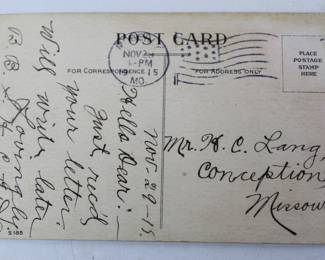 POST CARD
NOV 2
-PM
15
MO.
FOR CORRESPONDENCE
FOR ADDRESS ONLY
PLACE
POSTAGE
STAMP
HERE
Nov-29-15.
Hello Dear:-
Just rec'd
your letter.
Will write later
Lovingly
Mr. H. C. Lang
Conception
Missou
S 185